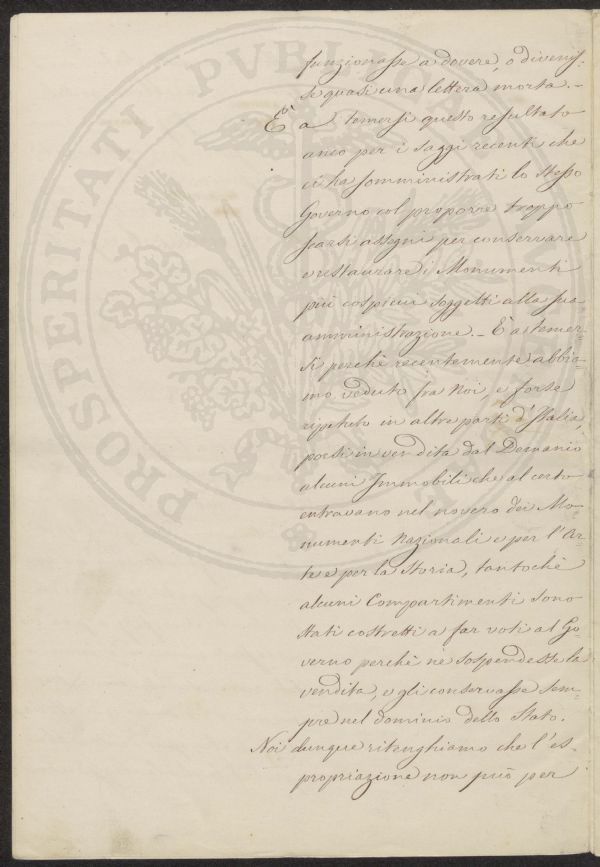 PROSPERITATI PVBLICAE
funzionasse a dovere, o divenis=
se quasi una lettera morta. –
È a temersi questo resultato
anco per i saggi recenti che
ci ha somministrati lo stesso
Governo col proporre troppo
scarsi assegni per conservare
e restaurare i Monumenti
più cospicui soggetti alla sua
amministrazione. – È a temer=
si perchè recentemente abbia=
mo veduto fra noi, e forse
ripetuto in altre parti d'Italia,
posti in vendita dal Demanio
alcuni Immobili che al certo
entravano nel novero dei Mo=
numenti Nazionali e per l'Ar=
te e per la Storia, tantochè
alcuni Compartimenti sono
stati costretti a far voti al Go=
verno perchè ne sospendesse la
vendita, e gli conservasse sem=
pre nel dominio dello Stato.
Noi dunque ritenghiamo che l'es=
propriazione non può per